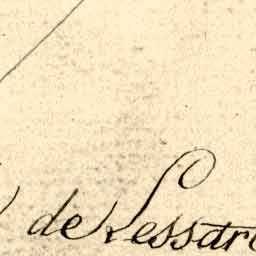 de Lessart